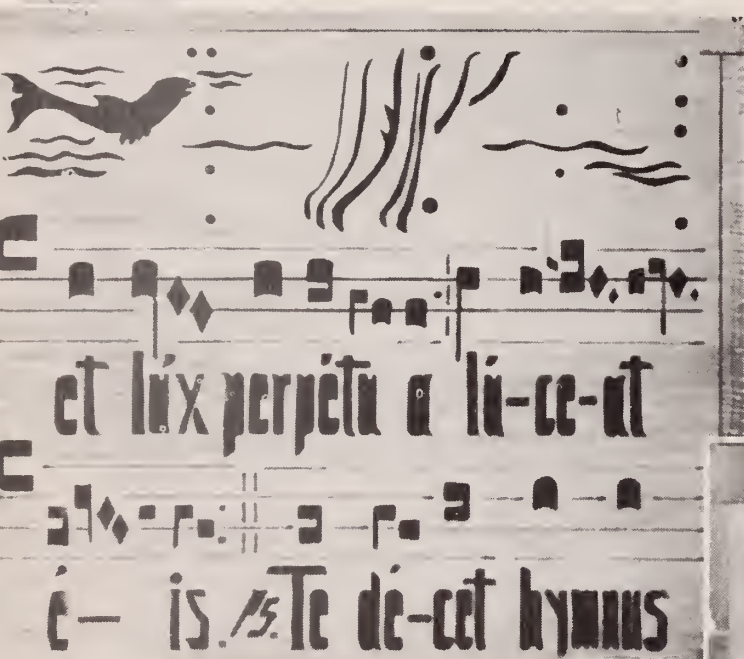 et lúx perpétu a lú-ce-at
é- is. Ps. Te dé-cet hymnus